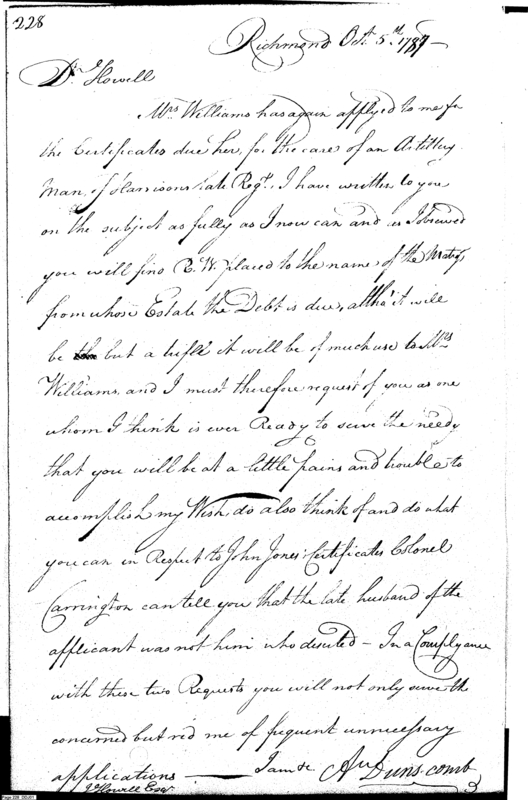 228
Richmond Octr. 5th. 1787 —
Dr. Howell
Mrs Williams has again applyed to me for
the Certificates due her, for the care of an Artillery
Man, of Harrisons late Regt., I have written to you
on the subject as fully as I now can and as I viewed
you will find R. W. placed to the name of the Matross
from whose Estate the Debt is due, altho' it will
be but a trifle it will be of much use to Mrs
Williams, and I must therefore request of you as one
whom I think is ever Ready to serve the needy
that you will be at a little pains and trouble to
accomplish my Wish, do also think of and do what
you can in Respect to John Jones' Certificates Colonel
Carrington can tell you that the late husband of the
applicant was not him who deserted — In a Complyance
with these two Requests you will not only serve the
concerned but rid me of frequent unnecessary
applications — I am &c Aw Dunscomb
J. Howell Esqr